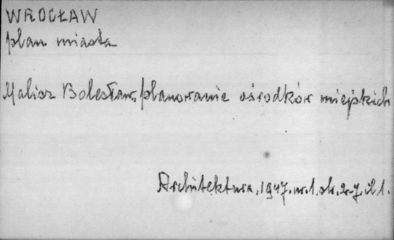 WROCŁAW
plan miasta
Malisz Bolesław, planowanie ośrodków miejskich
Architektura, 1947. nr. 1. str. 2-7, il 1.